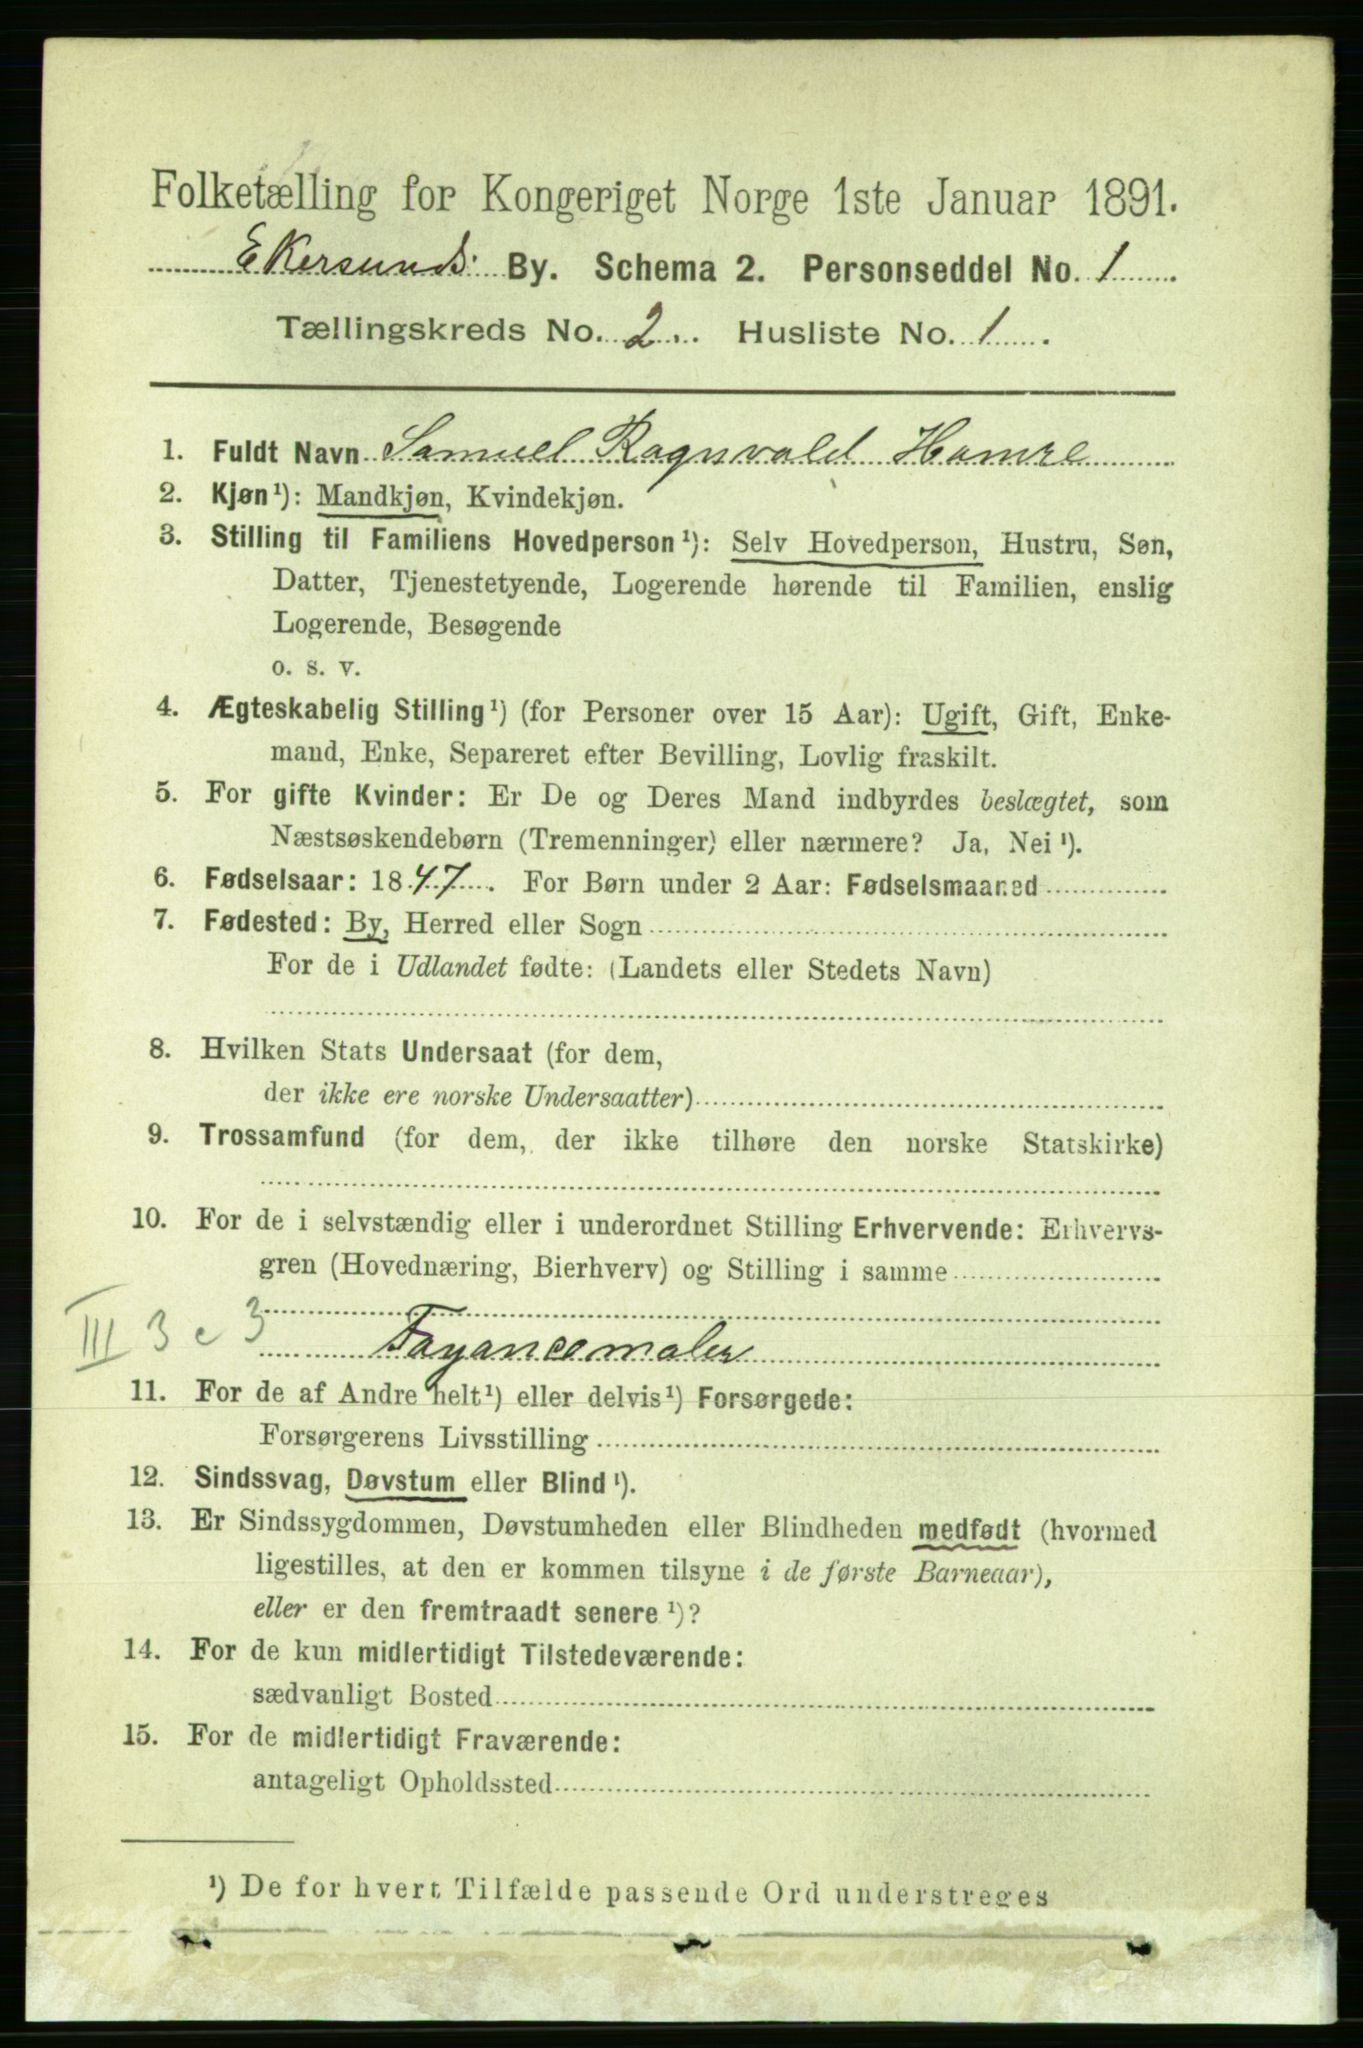 Folketælling for Kongeriget Norge 1ste Januar 1891.
Ekersunds By. Schema 2. Personseddel No. 1
Tællingskreds No. 2. Husliste No. 1
1. Fuldt Navn Samuel Ragnvald Hamre
2. Kjøn¹): Mandkjøn, Kvindekjøn.
3. Stilling til Familiens Hovedperson¹): Selv Hovedperson, Hustru, Søn,
Datter, Tjenestetyende, Logerende hørende til Familien, enslig
Logerende, Besøgende
o. s. v.
4. Ægteskabelig Stilling¹) (for Personer over 15 Aar): Ugift, Gift, Enke-
mand, Enke, Separeret efter Bevilling, Lovlig fraskilt.
5. For gifte Kvinder: Er De og Deres Mand indbyrdes beslægtet, som
Næstsøskendebørn (Tremenninger) eller nærmere? Ja, Nei¹).
6. Fødselsaar: 1847. For Børn under 2 Aar: Fødselsmaaned
7. Fødested: By, Herred eller Sogn
For de i Udlandet fødte: (Landets eller Stedets Navn)
8. Hvilken Stats Undersaat (for dem,
der ikke ere norske Undersaatter)
9. Trossamfund (for dem, der ikke tilhøre den norske Statskirke)
10. For de i selvstændig eller i underordnet Stilling Erhvervende: Erhvervs-
gren (Hovednæring, Bierhverv) og Stilling i samme
III 3 c 3
Fayancemaler
11. For de af Andre helt¹) eller delvis¹) Forsørgede:
Forsørgerens Livsstilling
12. Sindssvag, Døvstum eller Blind¹).
13. Er Sindssygdommen, Døvstumheden eller Blindheden medfødt (hvormed
ligestilles, at den er kommen tilsyne i de første Barneaar),
eller er den fremtraadt senere¹)?
14. For de kun midlertidigt Tilstedeværende:
sædvanligt Bosted
15. For de midlertidigt Fraværende:
antageligt Opholdssted
¹) De for hvert Tilfælde passende Ord understreges